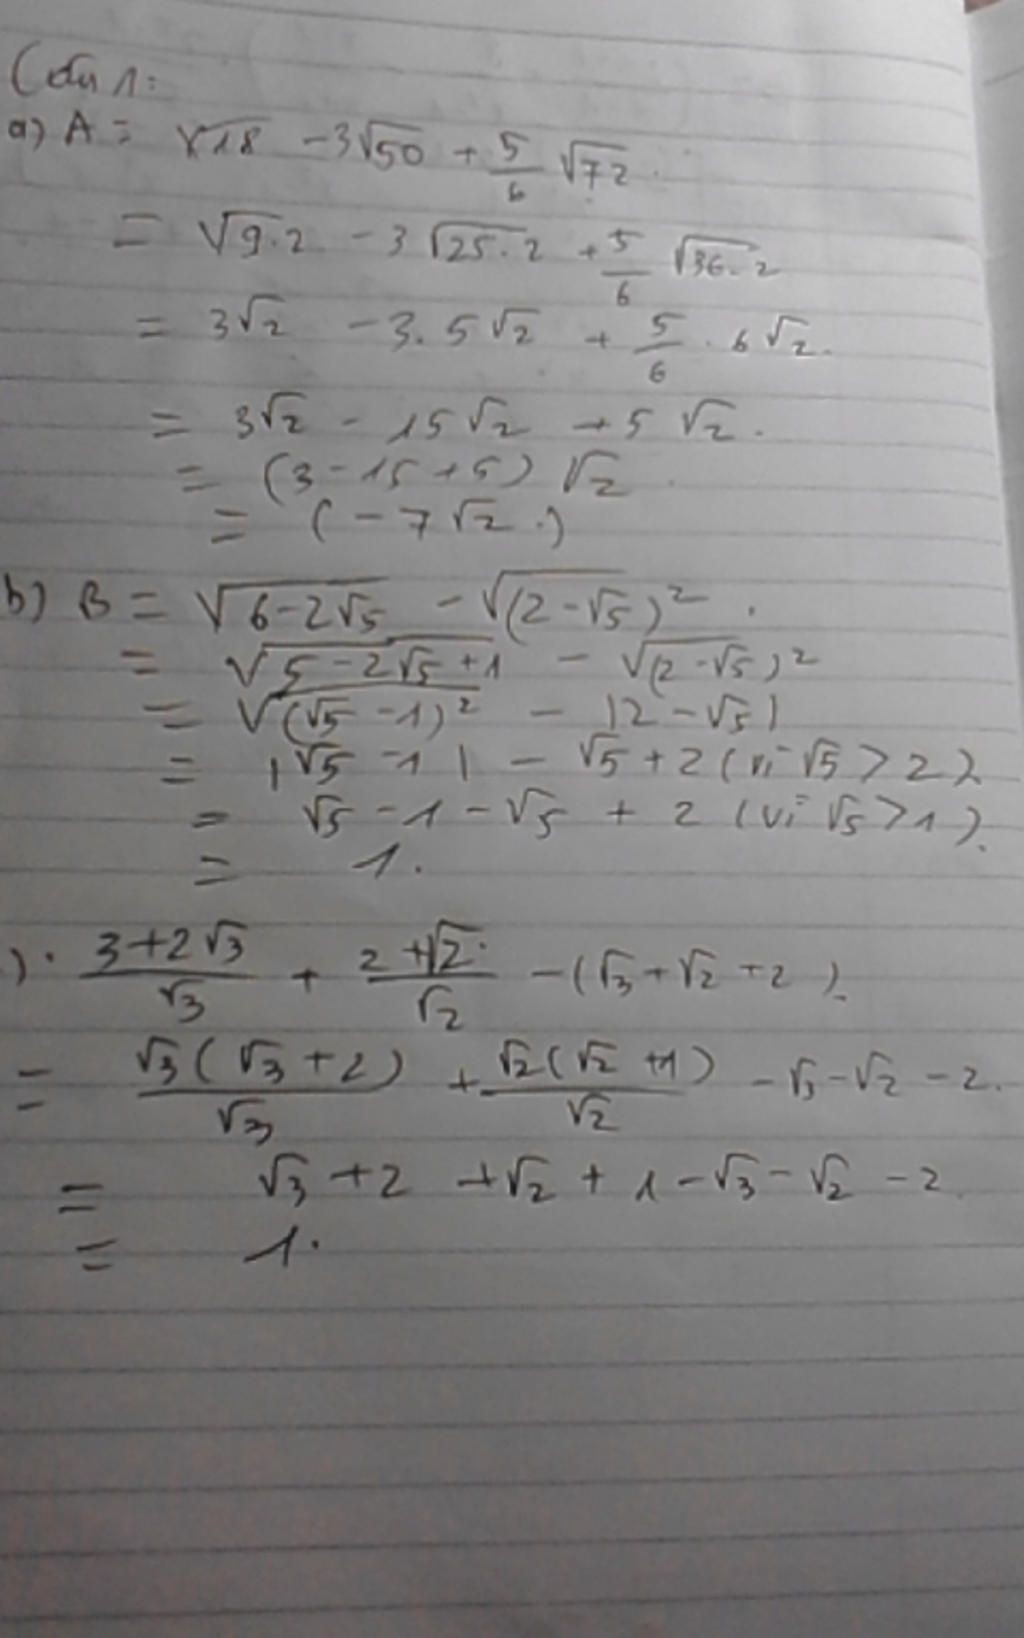 Câu 1:
a) A = √18 - 3√50 + 5/6 √72.
= √9.2 - 3√25.2 + 5/6 √36.2
= 3√2 - 3.5√2 + 5/6 . 6√2.
= 3√2 - 15√2 + 5√2.
= (3 - 15 + 5) √2.
= (-7√2.)
b) B = √(6-2√5) - √((2-√5)²).
= √(5-2√5+1) - √((2-√5)²)
= √((√5-1)²) - |2-√5|
= |√5-1| - √5+2 (vì √5>2)
= √5-1-√5+2 (vì √5>1).
= 1.
). (3+2√3)/√3 + (2+√2)/√2 - (√3+√2+2).
= √3(√3+2)/√3 + √2(√2+1)/√2 - √3-√2-2.
= √3+2+√2+1-√3-√2-2.
= 1.